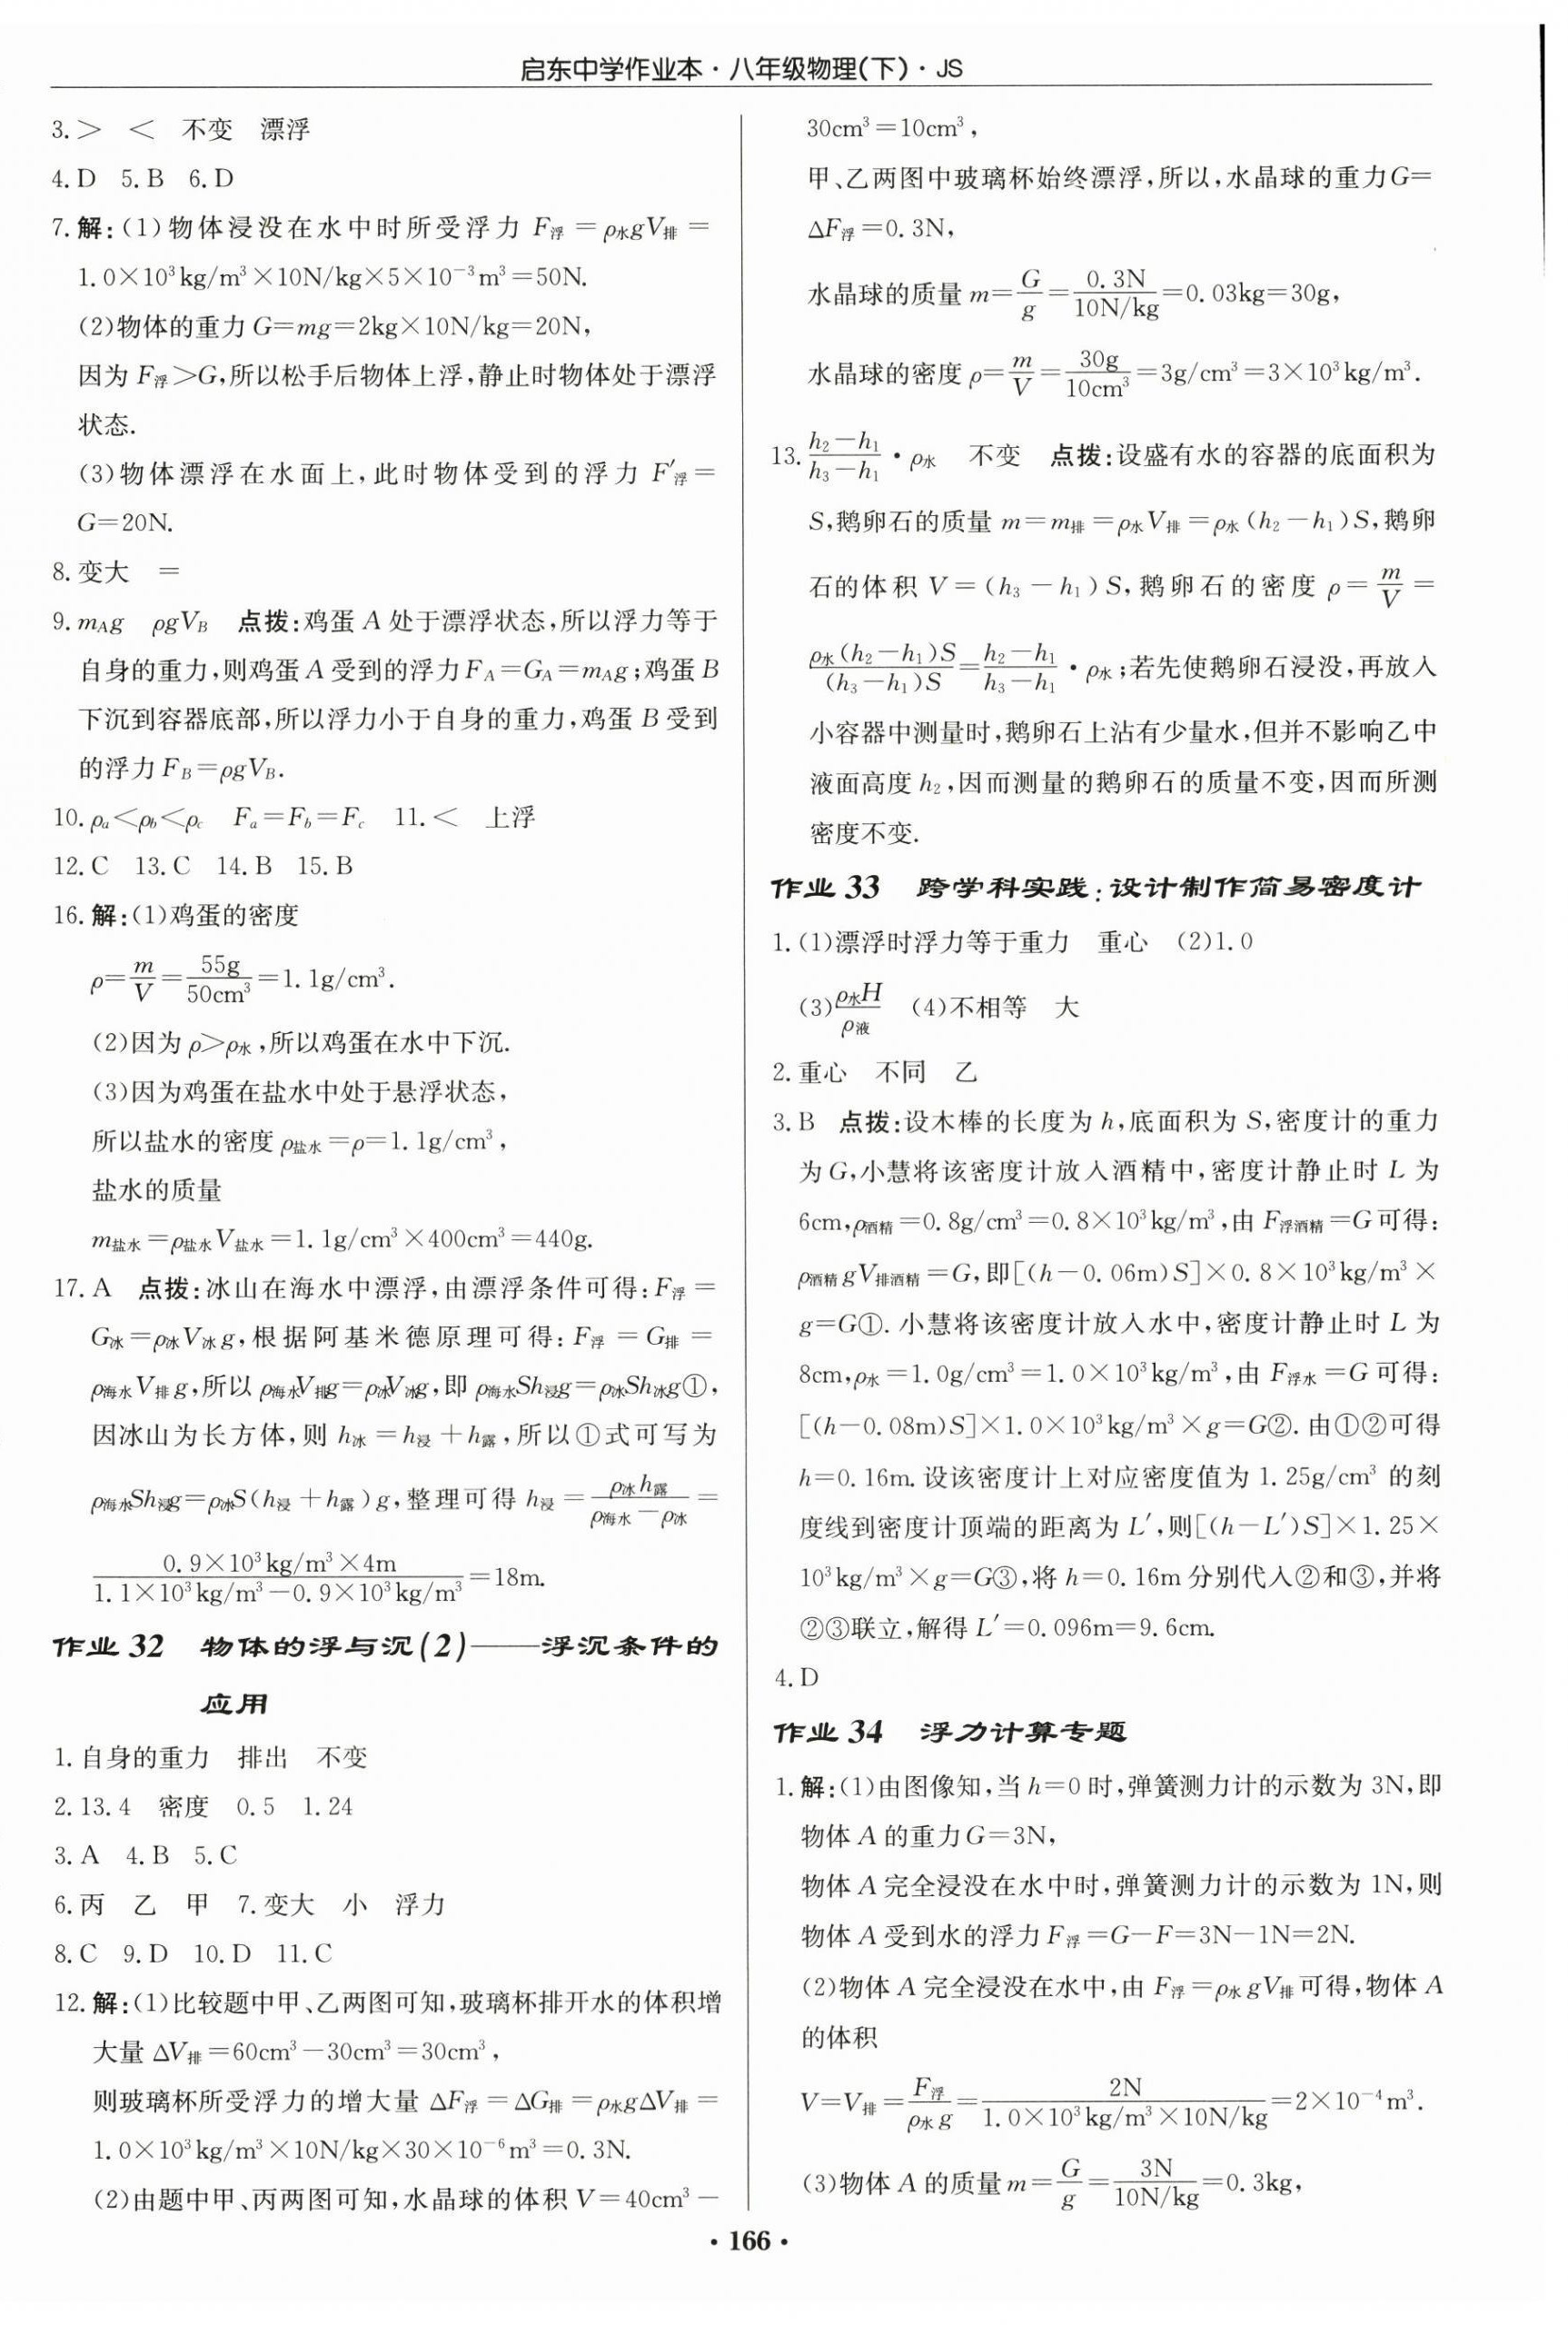 启东中学作业本·八年级物理(下)·JS
3.＞　＜　不变　漂浮
4.D　5.B　6.D
7.解:(1)物体浸没在水中时所受浮力 F浮＝ρ水gV排＝
1.0×10³kg/m³×10N/kg×5×10⁻³m³＝50N.
(2)物体的重力G＝mg＝2kg×10N/kg＝20N,
因为F浮＞G,所以松手后物体上浮,静止时物体处于漂浮
状态.
(3)物体漂浮在水面上,此时物体受到的浮力F′浮＝
G＝20N.
8.变大　＝
9.mAg　ρgVB　点拨:鸡蛋A处于漂浮状态,所以浮力等于
自身的重力,则鸡蛋A受到的浮力FA＝GA＝mAg;鸡蛋B
下沉到容器底部,所以浮力小于自身的重力,鸡蛋B受到
的浮力FB＝ρgVB.
10.ρa＜ρb＜ρc　Fa＝Fb＝Fc　11.＜　上浮
12.C　13.C　14.B　15.B
16.解:(1)鸡蛋的密度
ρ＝m/V＝55g/50cm³＝1.1g/cm³.
(2)因为ρ＞ρ水,所以鸡蛋在水中下沉.
(3)因为鸡蛋在盐水中处于悬浮状态,
所以盐水的密度ρ盐水＝ρ＝1.1g/cm³,
盐水的质量
m盐水＝ρ盐水V盐水＝1.1g/cm³×400cm³＝440g.
17.A　点拨:冰山在海水中漂浮,由漂浮条件可得:F浮＝
G冰＝ρ冰V冰g,根据阿基米德原理可得:F浮＝G排＝
ρ海水V排g,所以ρ海水V排g＝ρ冰V冰g,即ρ海水Sh浸g＝ρ冰Sh冰g①,
因冰山为长方体,则h冰＝h浸＋h露,所以①式可写为
ρ海水Sh浸g＝ρ冰S(h浸＋h露)g,整理可得h浸＝ρ冰h露/(ρ海水－ρ冰)＝
(0.9×10³kg/m³×4m)/(1.1×10³kg/m³－0.9×10³kg/m³)＝18m.
作业32　物体的浮与沉(2)——浮沉条件的
应用
1.自身的重力　排出　不变
2.13.4　密度　0.5　1.24
3.A　4.B　5.C
6.丙　乙　甲　7.变大　小　浮力
8.C　9.D　10.D　11.C
12.解:(1)比较题中甲、乙两图可知,玻璃杯排开水的体积增
大量ΔV排＝60cm³－30cm³＝30cm³,
则玻璃杯所受浮力的增大量ΔF浮＝ΔG排＝ρ水gΔV排＝
1.0×10³kg/m³×10N/kg×30×10⁻⁶m³＝0.3N.
(2)由题中甲、丙两图可知,水晶球的体积V＝40cm³－
30cm³＝10cm³,
甲、乙两图中玻璃杯始终漂浮,所以,水晶球的重力G＝
ΔF浮＝0.3N,
水晶球的质量m＝G/g＝0.3N/10N/kg＝0.03kg＝30g,
水晶球的密度ρ＝m/V＝30g/10cm³＝3g/cm³＝3×10³kg/m³.
13.(h₂－h₁)/(h₃－h₁)·ρ水　不变　点拨:设盛有水的容器的底面积为
S,鹅卵石的质量m＝m排＝ρ水V排＝ρ水(h₂－h₁)S,鹅卵
石的体积V＝(h₃－h₁)S,鹅卵石的密度ρ＝m/V＝
ρ水(h₂－h₁)S/(h₃－h₁)S＝(h₂－h₁)/(h₃－h₁)·ρ水;若先使鹅卵石浸没,再放入
小容器中测量时,鹅卵石上沾有少量水,但并不影响乙中
液面高度h₂,因而测量的鹅卵石的质量不变,因而所测
密度不变.
作业33　跨学科实践:设计制作简易密度计
1.(1)漂浮时浮力等于重力　重心　(2)1.0
(3)ρ水H/ρ液　(4)不相等　大
2.重心　不同　乙
3.B　点拨:设木棒的长度为h,底面积为S,密度计的重力
为G,小慧将该密度计放入酒精中,密度计静止时L为
6cm,ρ酒精＝0.8g/cm³＝0.8×10³kg/m³,由F浮酒精＝G可得:
ρ酒精gV排酒精＝G,即[(h－0.06m)S]×0.8×10³kg/m³×
g＝G①.小慧将该密度计放入水中,密度计静止时L为
8cm,ρ水＝1.0g/cm³＝1.0×10³kg/m³,由F浮水＝G可得:
[(h－0.08m)S]×1.0×10³kg/m³×g＝G②.由①②可得
h＝0.16m.设该密度计上对应密度值为1.25g/cm³的刻
度线到密度计顶端的距离为L′,则[(h－L′)S]×1.25×
10³kg/m³×g＝G③,将h＝0.16m分别代入②和③,并将
②③联立,解得L′＝0.096m＝9.6cm.
4.D
作业34　浮力计算专题
1.解:(1)由图像知,当h＝0时,弹簧测力计的示数为3N,即
物体A的重力G＝3N,
物体A完全浸没在水中时,弹簧测力计的示数为1N,则
物体A受到水的浮力F浮＝G－F＝3N－1N＝2N.
(2)物体A完全浸没在水中,由F浮＝ρ水gV排可得,物体A
的体积
V＝V排＝F浮/ρ水g＝2N/(1.0×10³kg/m³×10N/kg)＝2×10⁻⁴m³.
(3)物体A的质量m＝G/g＝3N/10N/kg＝0.3kg,
·166·